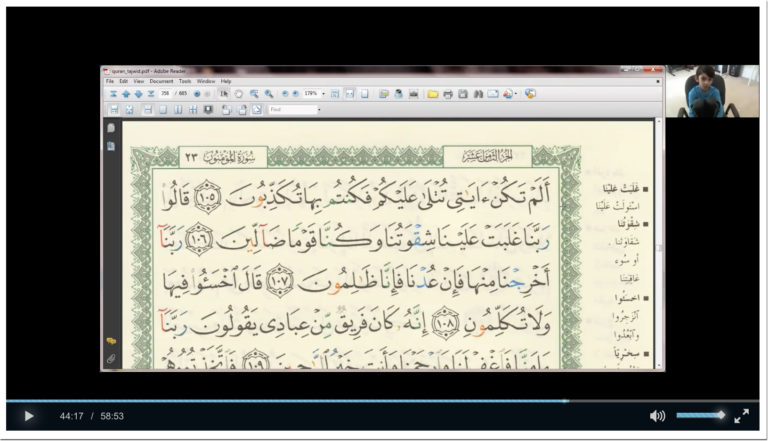 quran_tajwid.pdf - Adobe Reader
File Edit View Document Tools Window Help
358 / 605
179%
Find
سورة المؤمنون ٢٣
الجزء الثامن عشر
أَلَمْ تَكُنْ ءَايَٰتِى تُتْلَىٰ عَلَيْكُمْ فَكُنتُم بِهَا تُكَذِّبُونَ ١٠٥ قَالُوا۟
رَبَّنَا غَلَبَتْ عَلَيْنَا شِقْوَتُنَا وَكُنَّا قَوْمًا ضَآلِّينَ ١٠٦ رَبَّنَآ
أَخْرِجْنَا مِنْهَا فَإِنْ عُدْنَا فَإِنَّا ظَٰلِمُونَ ١٠٧ قَالَ ٱخْسَـُٔوا۟ فِيهَا
وَلَا تُكَلِّمُونِ ١٠٨ إِنَّهُۥ كَانَ فَرِيقٌ مِّنْ عِبَادِى يَقُولُونَ رَبَّنَآ
ءَامَنَّا فَٱغْفِرْ لَنَا وَٱرْحَمْنَا وَأَنتَ خَيْرُ ٱلرَّٰحِمِينَ ١٠٩ فَٱتَّخَذْتُمُوهُمْ
غَلَبَتْ عَلَيْنَا
اسْتَوْلَتْ عَلَيْنَا
شِقْوَتُنَا
شَقَاوَتُنا
أو سُوء
عَاقِبَتِنَا
اخْسَئُوا
انْزَجِرُوا
وابْعُدُوا
سِخْرِيًّا
44:17 / 58:53